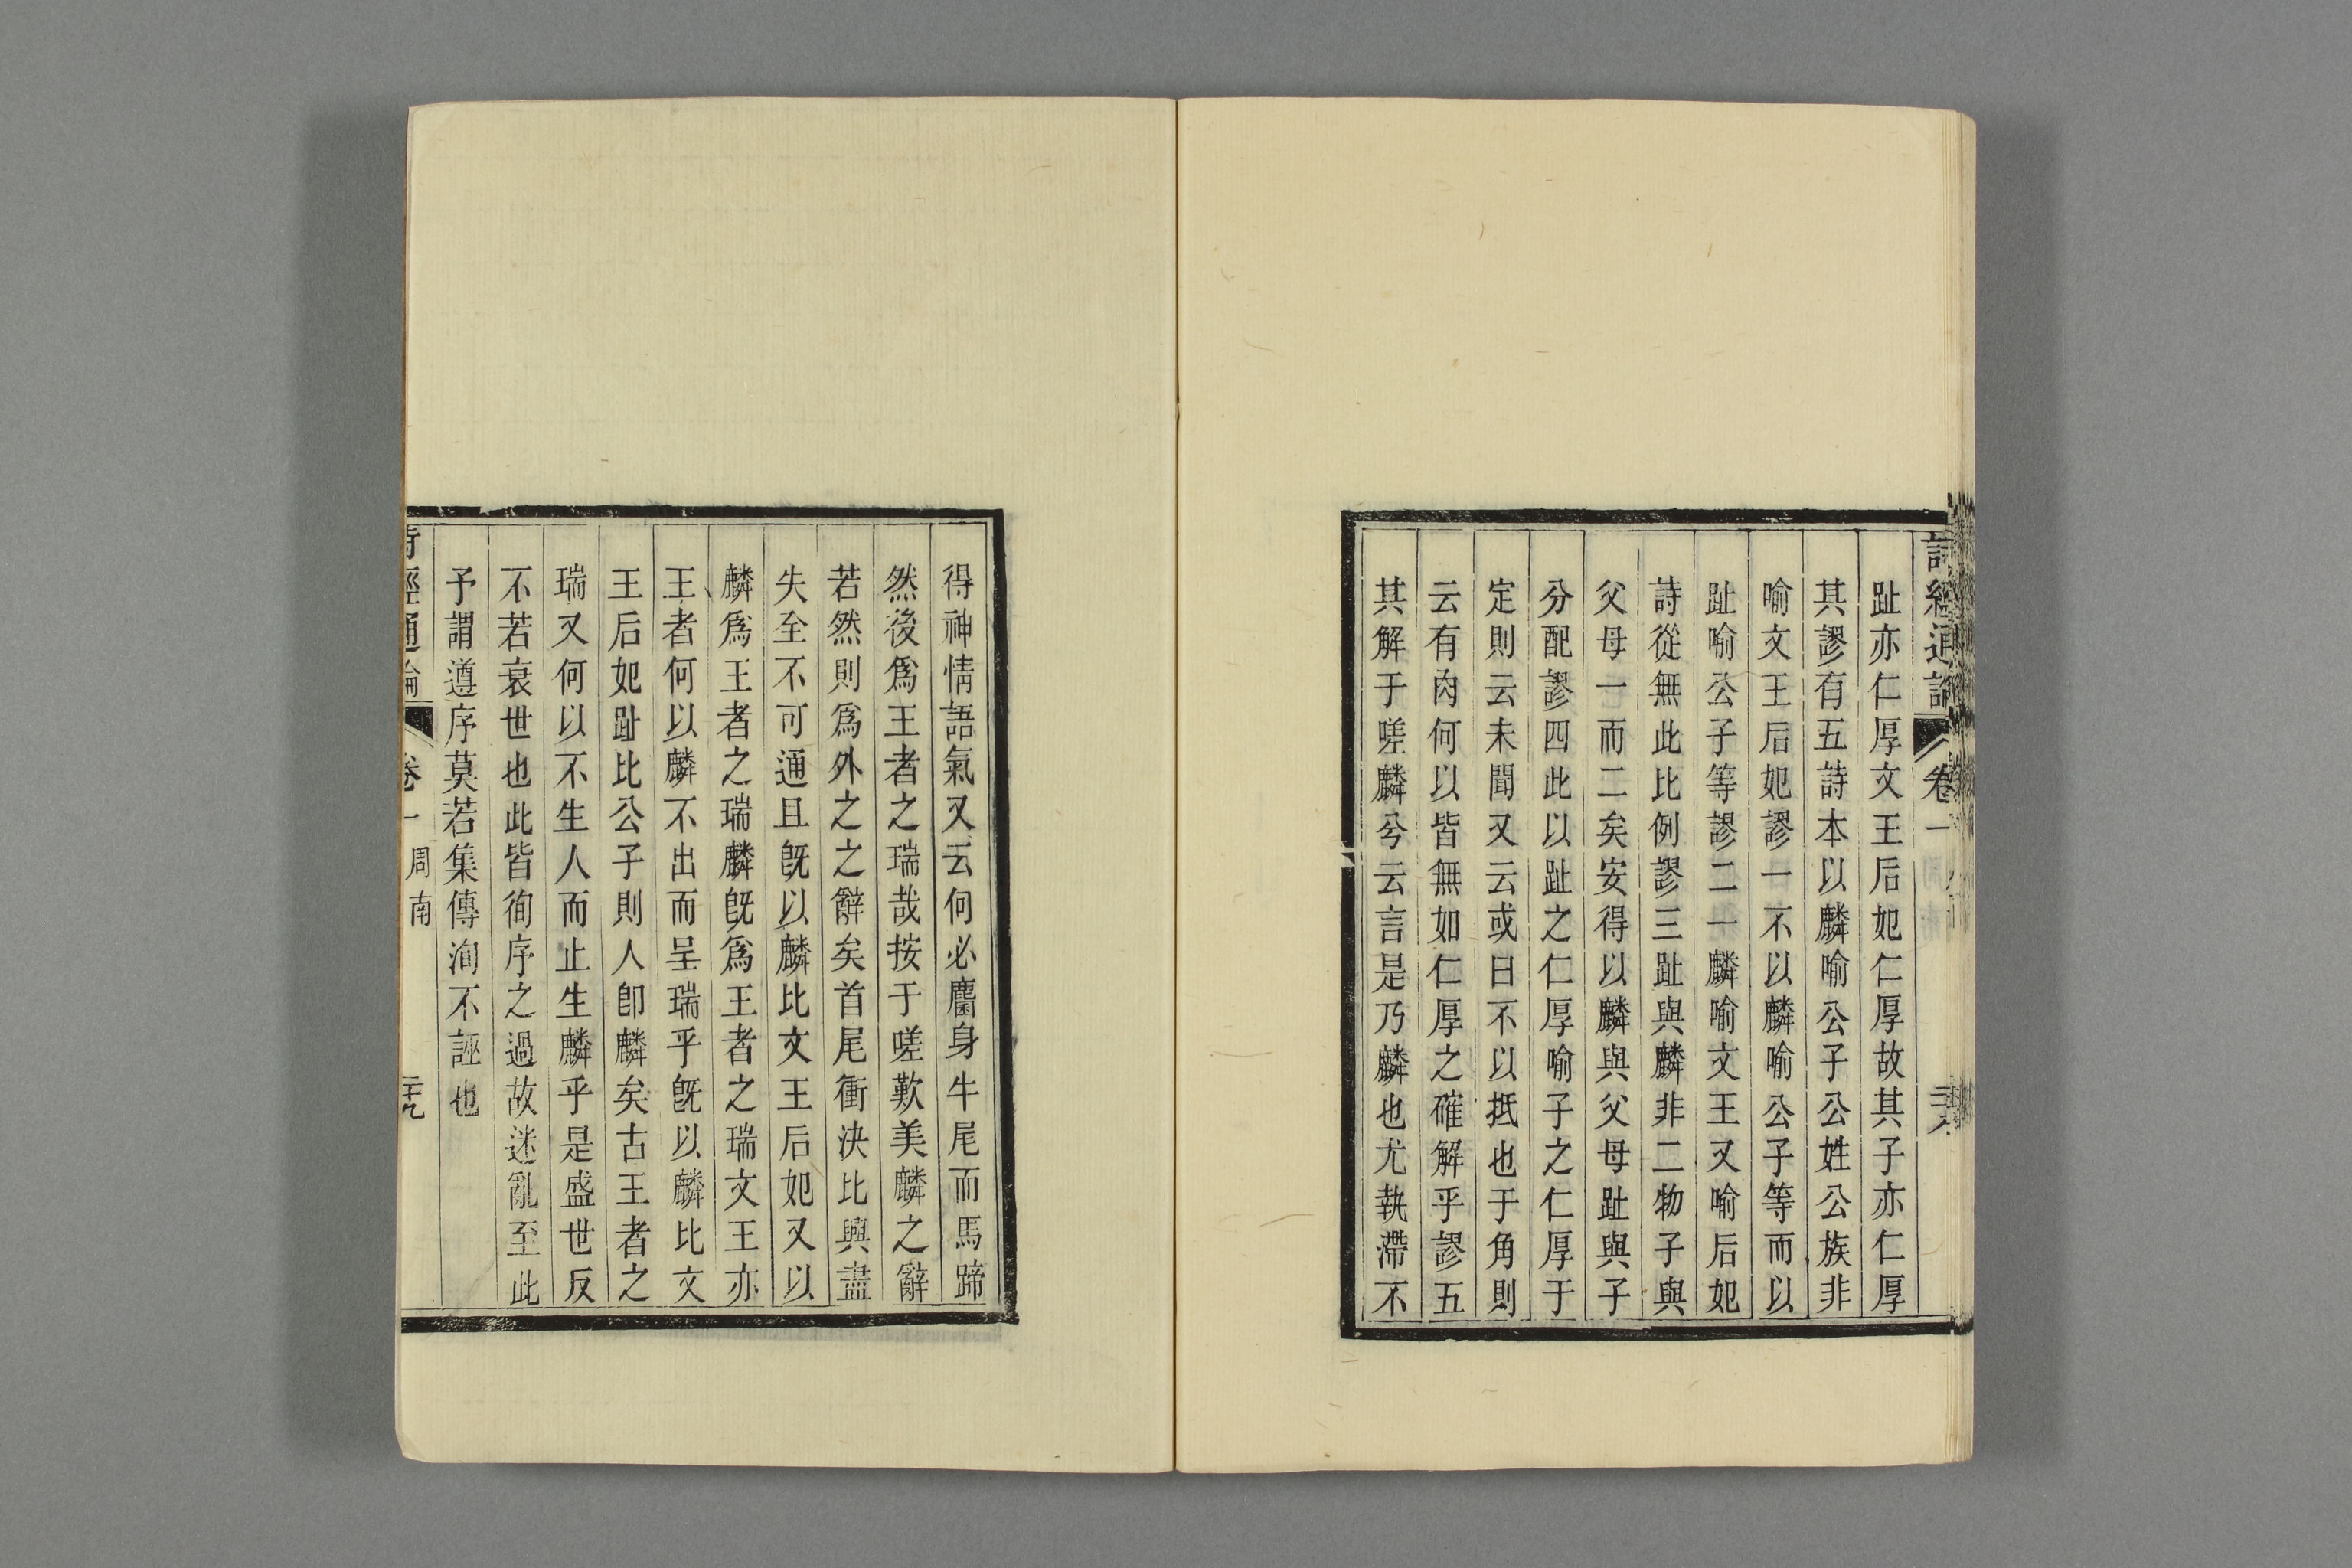 詩經通論 卷一 二十八
趾亦仁厚文王后妃仁厚故其子亦仁厚
其謬有五詩本以麟喻公子公姓公族非
喻文王后妃謬一不以麟喻公子等而以
趾喻公子等謬二一麟喻文王又喻后妃
詩從無此比例謬三趾與麟非二物子與
父母一而二矣安得以麟與父母趾與子
分配謬四此以趾之仁厚喻子之仁厚于
定則云未聞又云或曰不以抵也于角則
云有肉何以皆無如仁厚之確解乎謬五
其解于嗟麟兮云言是乃麟也尤執滯不
得神情語氣又云何必麕身牛尾而馬蹄
然後爲王者之瑞哉按于嗟歎美麟之辭
若然則爲外之之辭矣首尾衝決比興盡
失全不可通且旣以麟比文王后妃又以
麟爲王者之瑞麟旣爲王者之瑞文王亦
王者何以麟不出而呈瑞乎旣以麟比文
王后妃趾比公子則人卽麟矣古王者之
瑞又何以不生人而止生麟乎是盛世反
不若衰世也此皆徇序之過故迷亂至此
予謂遵序莫若集傳洵不誣也
詩經通論 卷一 周南 二十九